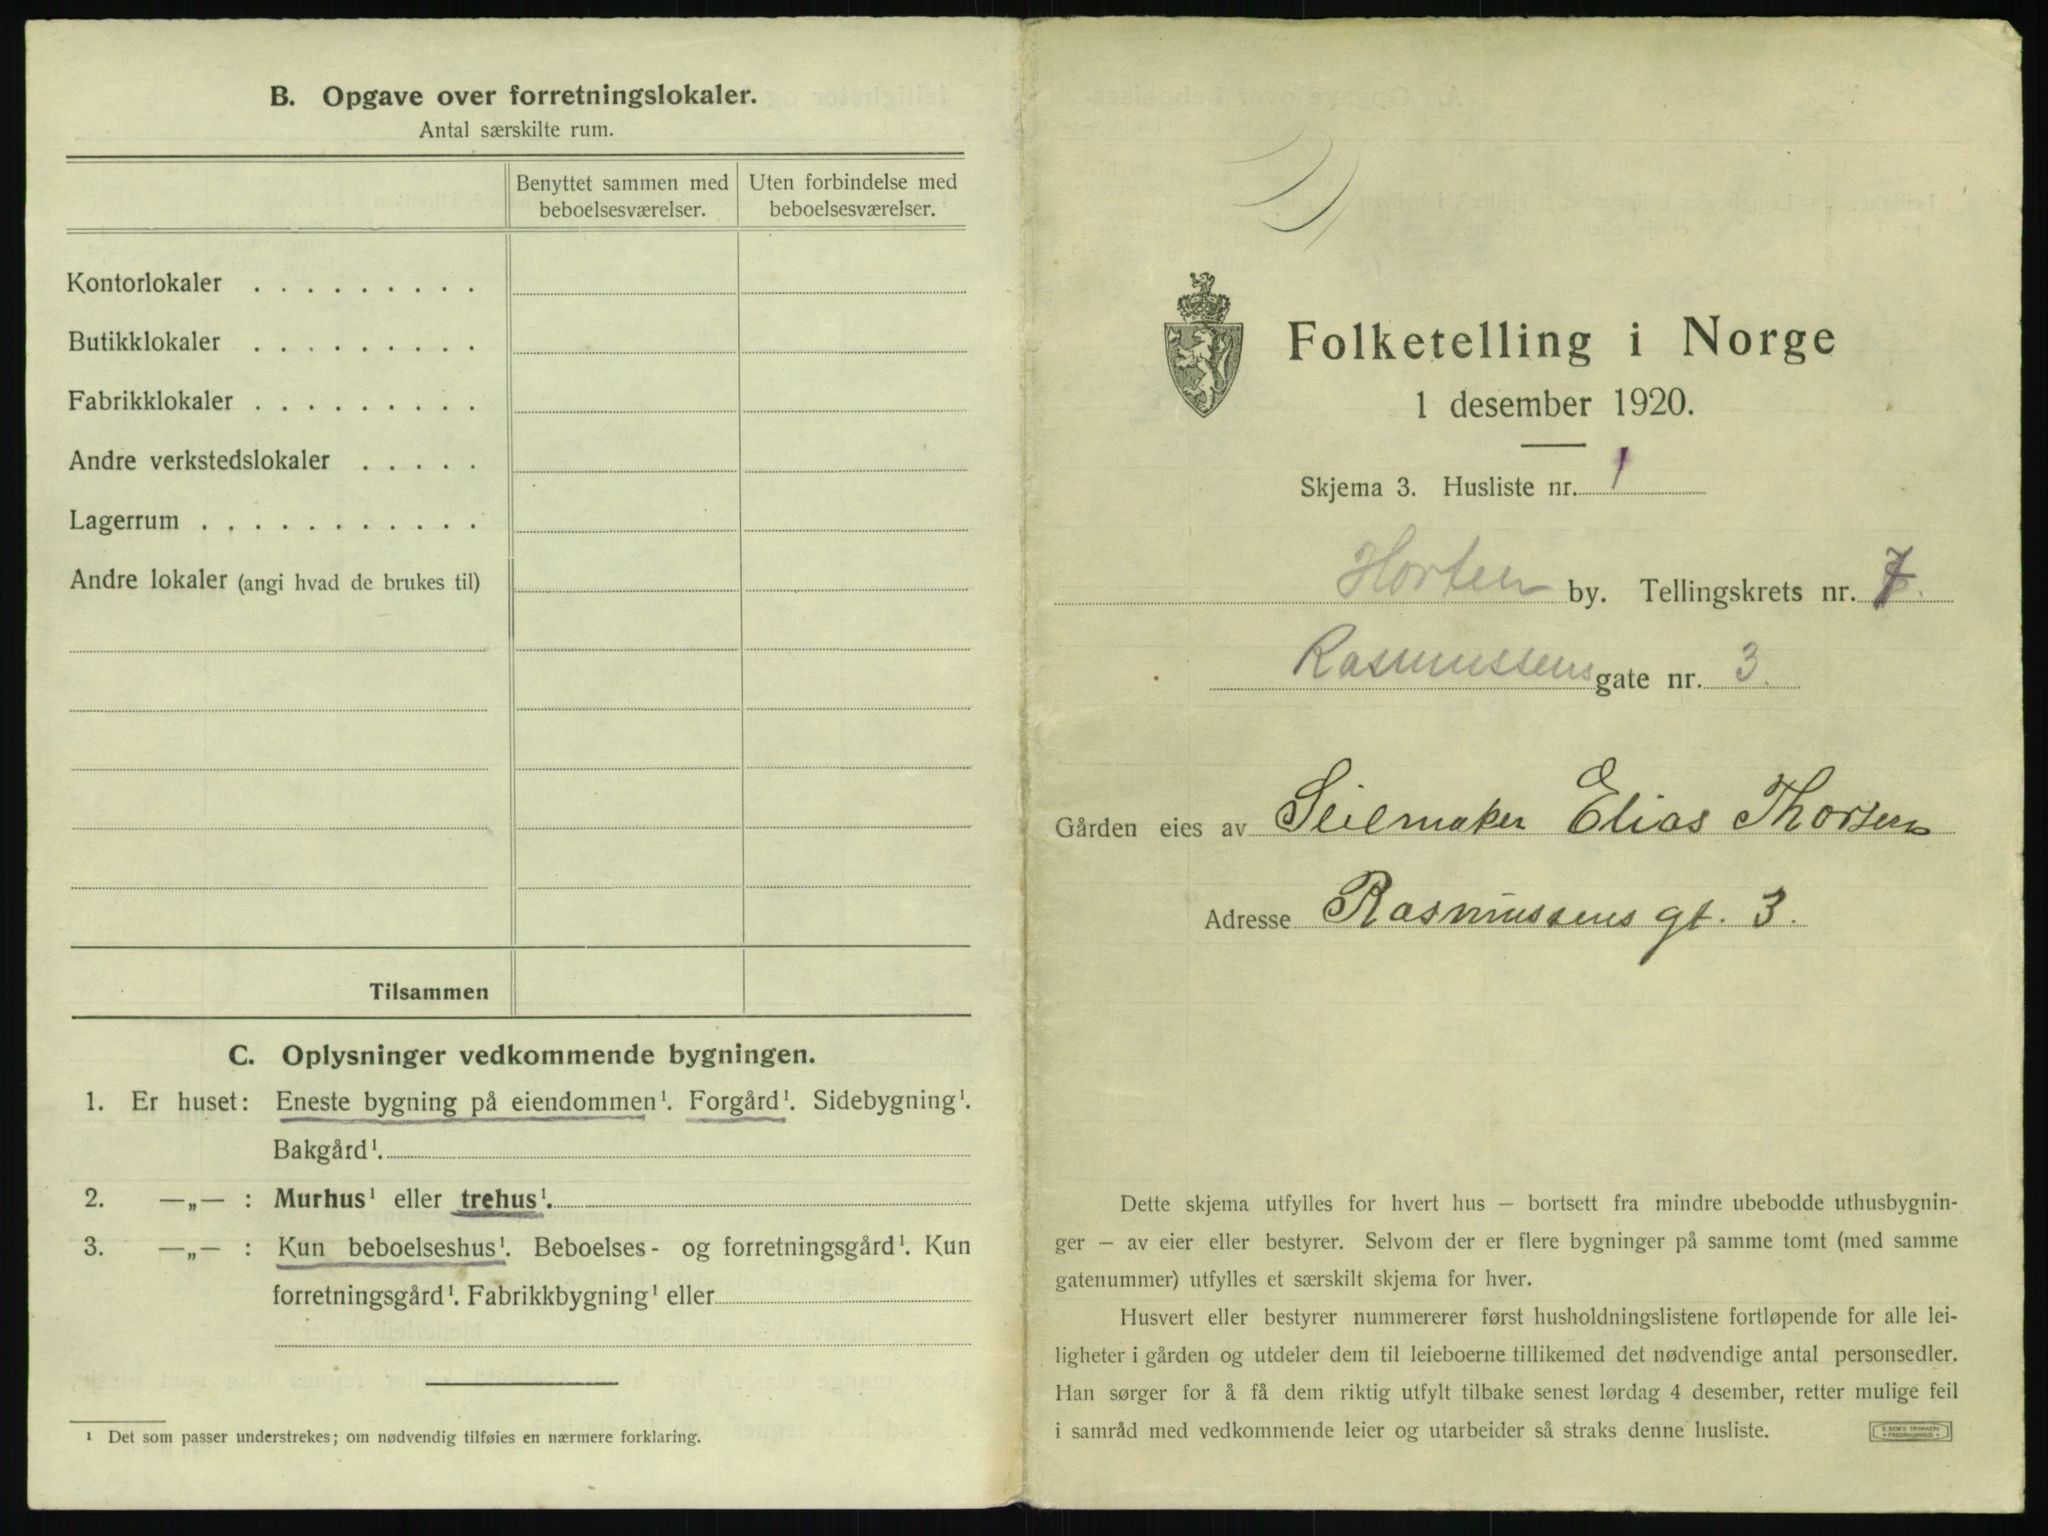 B. Opgave over forretningslokaler.
Antal særskilte rum.
Benyttet sammen med beboelsesværelser.
Uten forbindelse med beboelsesværelser.
Kontorlokaler . . . . . . . . .
Butikklokaler . . . . . . . . .
Fabrikklokaler . . . . . . . . .
Andre verkstedslokaler . . . . .
Lagerrum . . . . . . . . . . .
Andre lokaler (angi hvad de brukes til)
Tilsammen
C. Oplysninger vedkommende bygningen.
1. Er huset: Eneste bygning på eiendommen¹. Forgård¹. Sidebygning¹.
Bakgård¹.
2. —„— : Murhus¹ eller trehus¹.
3. —„— : Kun beboelseshus¹. Beboelses- og forretningsgård¹. Kun
forretningsgård¹. Fabrikkbygning¹ eller
¹ Det som passer understrekes; om nødvendig tilføies en nærmere forklaring.
Folketelling i Norge
1 desember 1920.
Skjema 3. Husliste nr. 1
Horten by. Tellingskrets nr. 7.
Rasmussens gate nr. 3.
Gården eies av Seilmaker Elias Thorsen
Adresse Rasmussens gt. 3.
Dette skjema utfylles for hvert hus – bortsett fra mindre ubebodde uthusbygnin-
ger – av eier eller bestyrer. Selvom der er flere bygninger på samme tomt (med samme
gatenummer) utfylles et særskilt skjema for hver.
Husvert eller bestyrer nummererer først husholdningslistene fortløpende for alle lei-
ligheter i gården og utdeler dem til leieboerne tillikemed det nødvendige antal personsedler.
Han sørger for å få dem riktig utfylt tilbake senest lørdag 4 desember, retter mulige feil
i samråd med vedkommende leier og utarbeider så straks denne husliste.